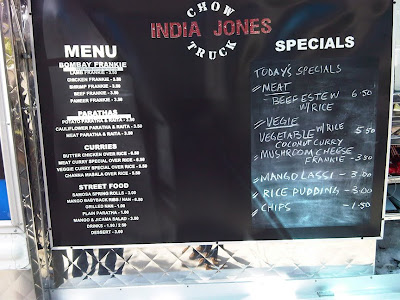 CHOW
INDIA JONES
TRUCK
MENU
BOMBAY FRANKIE
LAMB FRANKIE - 3.50
CHICKEN FRANKIE - 3.50
SHRIMP FRANKIE - 3.50
BEEF FRANKIE - 3.50
PANEER FRANKIE - 3.50
PARATHAS
POTATO PARATHA & RAITA - 3.50
CAULIFLOWER PARATHA & RAITA - 3.50
MEAT PARATHA & RAITA - 3.50
CURRIES
BUTTER CHICKEN OVER RICE - 6.50
MEAT CURRY SPECIAL OVER RICE - 6.50
VEGGIE CURRY SPECIAL OVER RICE - 5.50
CHANNA MASALA OVER RICE - 5.50
STREET FOOD
SAMOSA SPRING ROLLS - 3.50
MANGO BABYBACK RIBS / NAN - 6.50
GRILLED NAN - 1.00
PLAIN PARATHA - 1.00
MANGO & JICAMA SALAD - 3.00
DRINKS - 1.50 / 2.50
DESSERT - 3.00
SPECIALS
TODAY'S SPECIALS
MEAT
BEEF STEW 6.50
W/RICE
VEGIE
VEGETABLE W/RICE 5.50
COCONUT CURRY
MUSHROOM CHEESE
FRANKIE - 3.50
MANGO LASSI - 3.00
RICE PUDDING - 3.00
CHIPS - 1.50